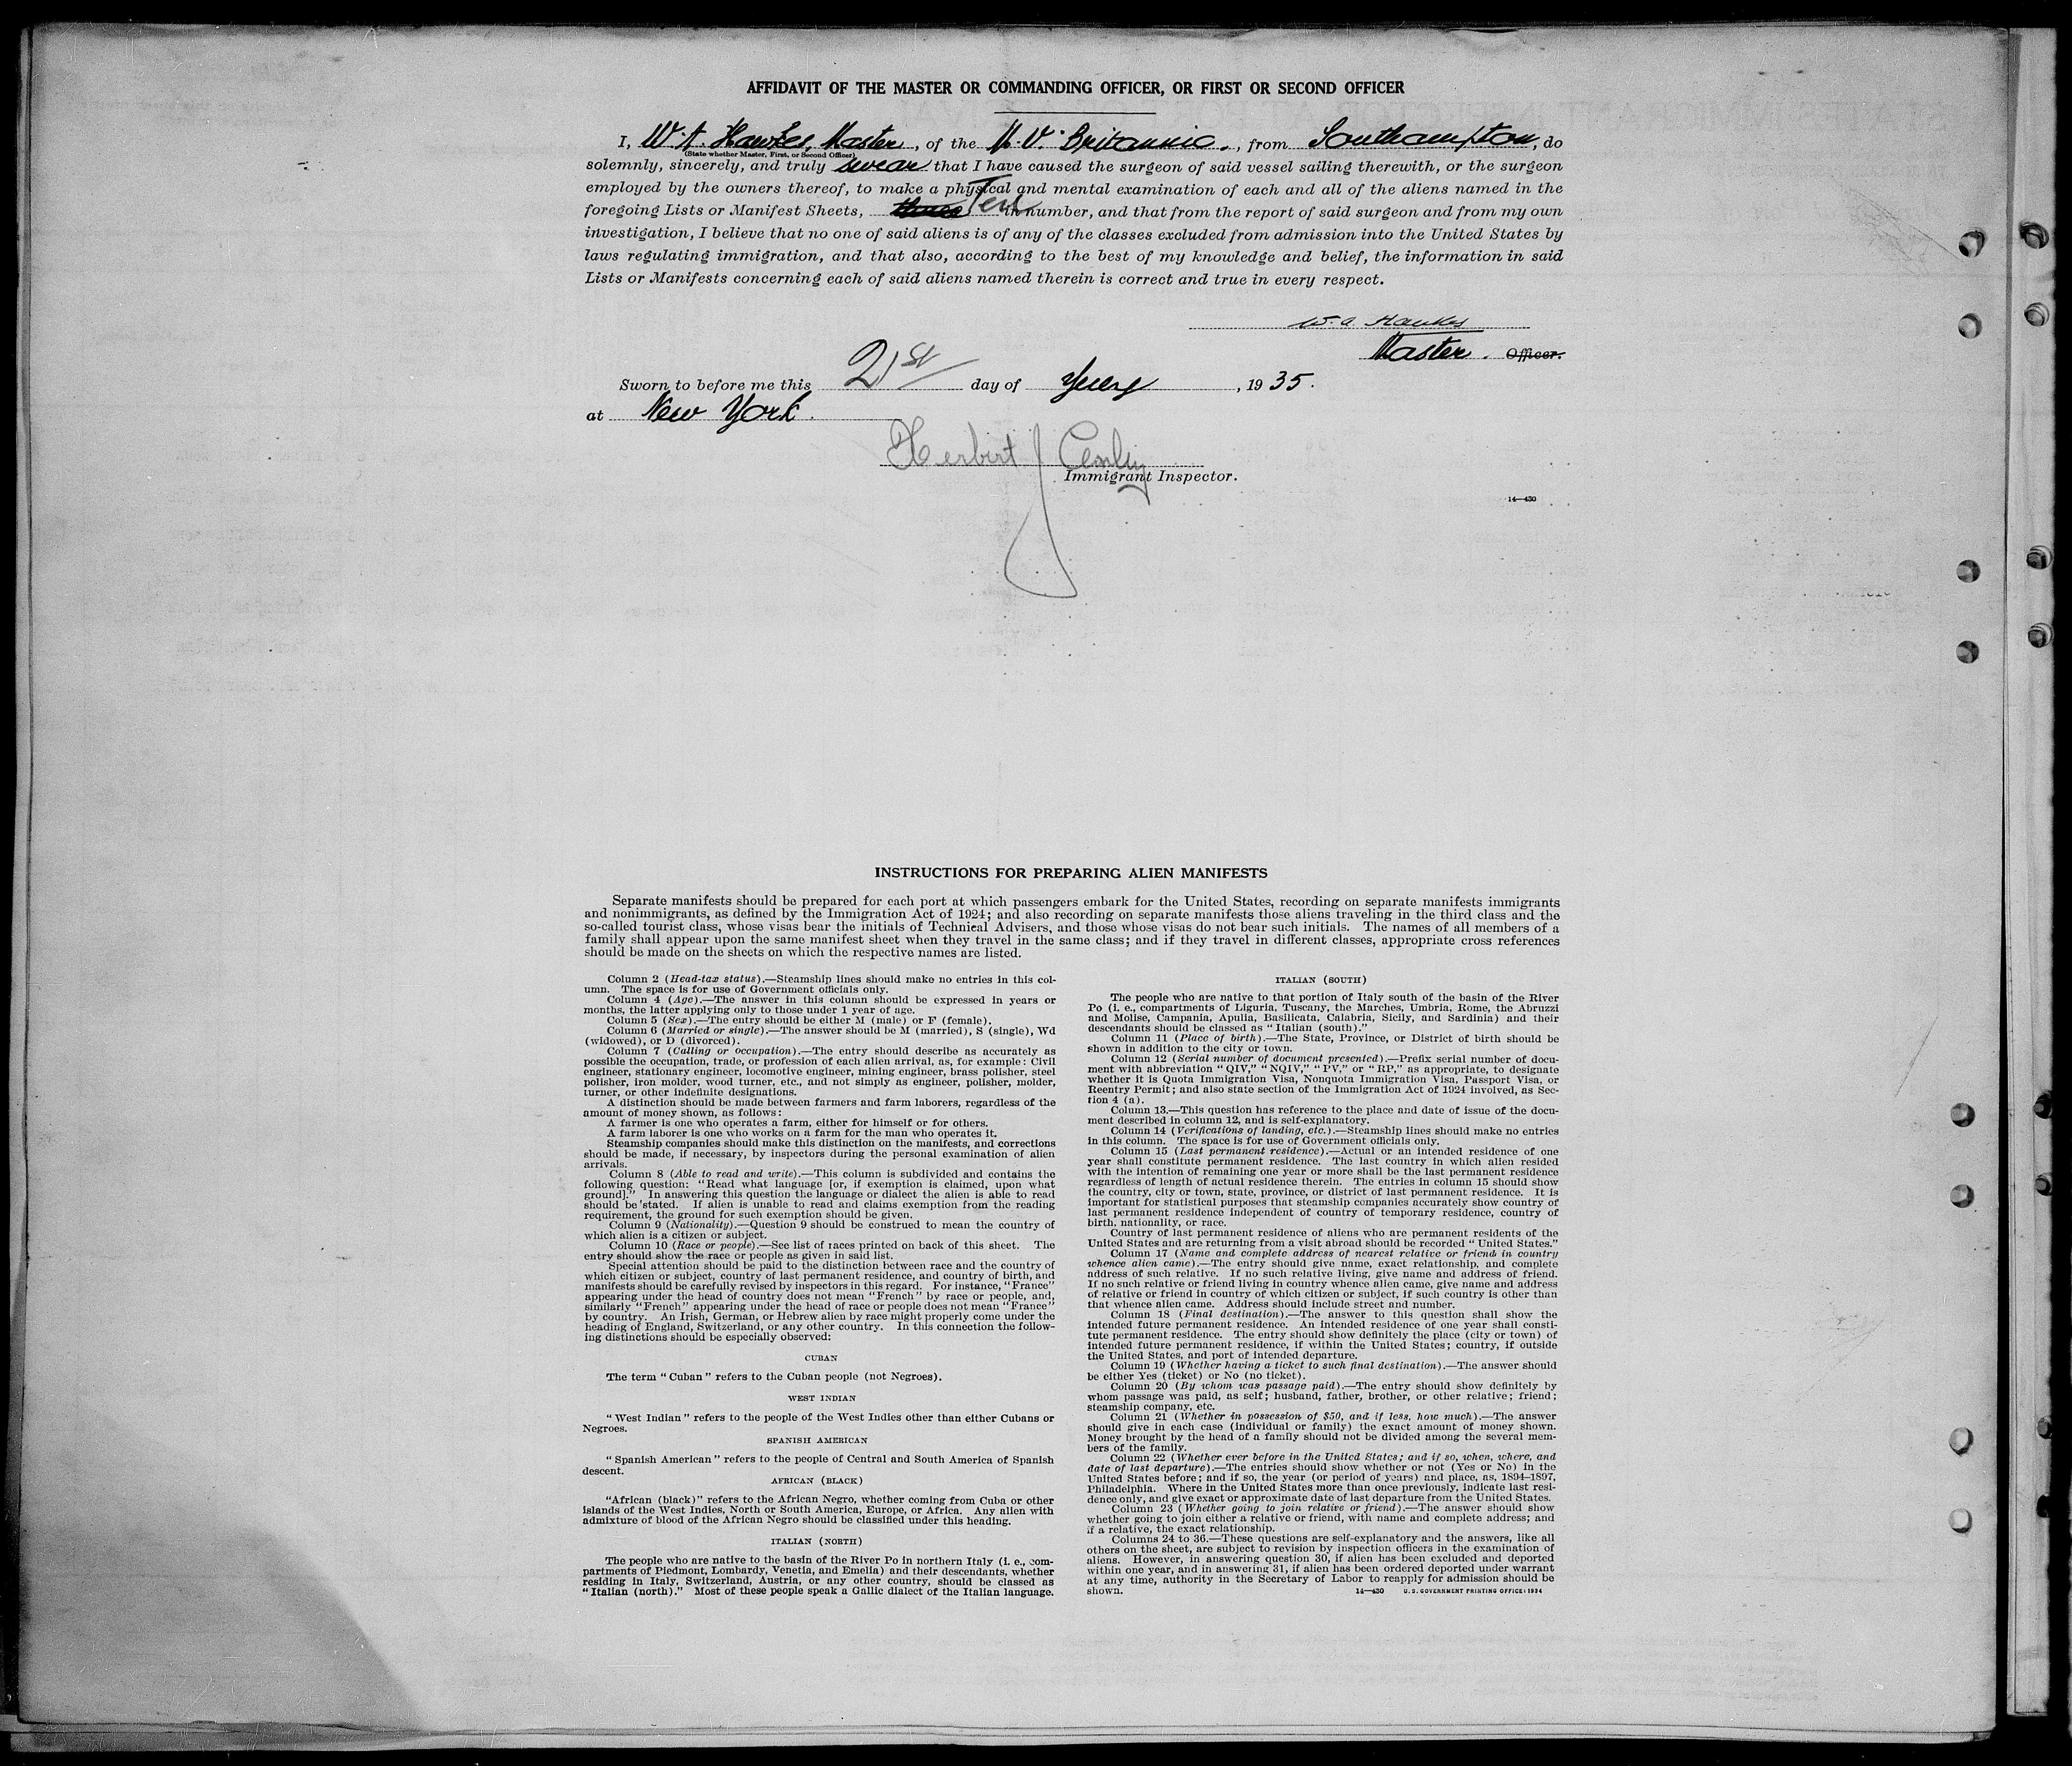 AFFIDAVIT OF THE MASTER OR COMMANDING OFFICER, OR FIRST OR SECOND OFFICER
I, W. A. Hawkes, Master, of the M.V. Britannic., from Southampton, do
(State whether Master, First, or Second Officer)
solemnly, sincerely, and truly swear that I have caused the surgeon of said vessel sailing therewith, or the surgeon
employed by the owners thereof, to make a physical and mental examination of each and all of the aliens named in the
foregoing Lists or Manifest Sheets, three Ten in number, and that from the report of said surgeon and from my own
investigation, I believe that no one of said aliens is of any of the classes excluded from admission into the United States by
laws regulating immigration, and that also, according to the best of my knowledge and belief, the information in said
Lists or Manifests concerning each of said aliens named therein is correct and true in every respect.
W. A. Hawkes
Master. Officer.
Sworn to before me this 21st day of July, 1935.
at New York.
Herbert J
Immigrant Inspector.
14—430
INSTRUCTIONS FOR PREPARING ALIEN MANIFESTS
Separate manifests should be prepared for each port at which passengers embark for the United States, recording on separate manifests immigrants
and nonimmigrants, as defined by the Immigration Act of 1924; and also recording on separate manifests those aliens traveling in the third class and the
so-called tourist class, whose visas bear the initials of Technical Advisers, and those whose visas do not bear such initials. The names of all members of a
family shall appear upon the same manifest sheet when they travel in the same class; and if they travel in different classes, appropriate cross references
should be made on the sheets on which the respective names are listed.
Column 2 (Head-tax status).—Steamship lines should make no entries in this col-
umn. The space is for use of Government officials only.
Column 4 (Age).—The answer in this column should be expressed in years or
months, the latter applying only to those under 1 year of age.
Column 5 (Sex).—The entry should be either M (male) or F (female).
Column 6 (Married or single).—The answer should be M (married), S (single), Wd
(widowed), or D (divorced).
Column 7 (Calling or occupation).—The entry should describe as accurately as
possible the occupation, trade, or profession of each alien arrival, as, for example: Civil
engineer, stationary engineer, locomotive engineer, mining engineer, brass polisher, steel
polisher, iron molder, wood turner, etc., and not simply as engineer, polisher, molder,
turner, or other indefinite designations.
A distinction should be made between farmers and farm laborers, regardless of the
amount of money shown, as follows:
A farmer is one who operates a farm, either for himself or for others.
A farm laborer is one who works on a farm for the man who operates it.
Steamship companies should make this distinction on the manifests, and corrections
should be made, if necessary, by inspectors during the personal examination of alien
arrivals.
Column 8 (Able to read and write).—This column is subdivided and contains the
following question: "Read what language [or, if exemption is claimed, upon what
ground]." In answering this question the language or dialect the alien is able to read
should be stated. If alien is unable to read and claims exemption from the reading
requirement, the ground for such exemption should be given.
Column 9 (Nationality).—Question 9 should be construed to mean the country of
which alien is a citizen or subject.
Column 10 (Race or people).—See list of races printed on back of this sheet. The
entry should show the race or people as given in said list.
Special attention should be paid to the distinction between race and the country of
which citizen or subject, country of last permanent residence, and country of birth, and
manifests should be carefully revised by inspectors in this regard. For instance, "France"
appearing under the head of country does not mean "French" by race or people, and,
similarly "French" appearing under the head of race or people does not mean "France"
by country. An Irish, German, or Hebrew alien by race might properly come under the
heading of England, Switzerland, or any other country. In this connection the follow-
ing distinctions should be especially observed:
CUBAN
The term "Cuban" refers to the Cuban people (not Negroes).
WEST INDIAN
"West Indian" refers to the people of the West Indies other than either Cubans or
Negroes.
SPANISH AMERICAN
"Spanish American" refers to the people of Central and South America of Spanish
descent.
AFRICAN (BLACK)
"African (black)" refers to the African Negro, whether coming from Cuba or other
islands of the West Indies, North or South America, Europe, or Africa. Any alien with
admixture of blood of the African Negro should be classified under this heading.
ITALIAN (NORTH)
The people who are native to the basin of the River Po in northern Italy (i. e., com-
partments of Piedmont, Lombardy, Venetia, and Emelia) and their descendants, whether
residing in Italy, Switzerland, Austria, or any other country, should be classed as
"Italian (north)." Most of these people speak a Gallic dialect of the Italian language.
ITALIAN (SOUTH)
The people who are native to that portion of Italy south of the basin of the River
Po (i. e., compartments of Liguria, Tuscany, the Marches, Umbria, Rome, the Abruzzi
and Molise, Campania, Apulia, Basilicata, Calabria, Sicily, and Sardinia) and their
descendants should be classed as "Italian (south)."
Column 11 (Place of birth).—The State, Province, or District of birth should be
shown in addition to the city or town.
Column 12 (Serial number of document presented).—Prefix serial number of docu-
ment with abbreviation "QIV," "NQIV," "PV," or "RP," as appropriate, to designate
whether it is Quota Immigration Visa, Nonquota Immigration Visa, Passport Visa, or
Reentry Permit; and also state section of the Immigration Act of 1924 involved, as Sec-
tion 4 (a).
Column 13.—This question has reference to the place and date of issue of the docu-
ment described in column 12, and is self-explanatory.
Column 14 (Verifications of landing, etc.).—Steamship lines should make no entries
in this column. The space is for use of Government officials only.
Column 15 (Last permanent residence).—Actual or an intended residence of one
year shall constitute permanent residence. The last country in which alien resided
with the intention of remaining one year or more shall be the last permanent residence
regardless of length of actual residence therein. The entries in column 15 should show
the country, city or town, state, province, or district of last permanent residence. It is
important for statistical purposes that steamship companies accurately show country of
last permanent residence independent of country of temporary residence, country of
birth, nationality, or race.
Country of last permanent residence of aliens who are permanent residents of the
United States and are returning from a visit abroad should be recorded "United States."
Column 17 (Name and complete address of nearest relative or friend in country
whence alien came).—The entry should give name, exact relationship, and complete
address of such relative. If no such relative living, give name and address of friend.
If no such relative or friend living in country whence alien came, give name and address
of relative or friend in country of which citizen or subject, if such country is other than
that whence alien came. Address should include street and number.
Column 18 (Final destination).—The answer to this question shall show the
intended future permanent residence. An intended residence of one year shall consti-
tute permanent residence. The entry should show definitely the place (city or town) of
intended future permanent residence, if within the United States; country, if outside
the United States, and port of intended departure.
Column 19 (Whether having a ticket to such final destination).—The answer should
be either Yes (ticket) or No (no ticket).
Column 20 (By whom was passage paid).—The entry should show definitely by
whom passage was paid, as self; husband, father, brother, or other relative; friend;
steamship company, etc.
Column 21 (Whether in possession of $50, and if less, how much).—The answer
should give in each case (individual or family) the exact amount of money shown.
Money brought by the head of a family should not be divided among the several mem-
bers of the family.
Column 22 (Whether ever before in the United States; and if so, when, where, and
date of last departure).—The entries should show whether or not (Yes or No) in the
United States before; and if so, the year (or period of years) and place, as, 1894–1897,
Philadelphia. Where in the United States more than once previously, indicate last resi-
dence only, and give exact or approximate date of last departure from the United States.
Column 23 (Whether going to join relative or friend).—The answer should show
whether going to join either a relative or friend, with name and complete address; and
if a relative, the exact relationship.
Columns 24 to 36.—These questions are self-explanatory and the answers, like all
others on the sheet, are subject to revision by inspection officers in the examination of
aliens. However, in answering question 30, if alien has been excluded and deported
within one year, and in answering 31, if alien has been ordered deported under warrant
at any time, authority in the Secretary of Labor to reapply for admission should be
shown.
14—430 U. S. GOVERNMENT PRINTING OFFICE: 1934